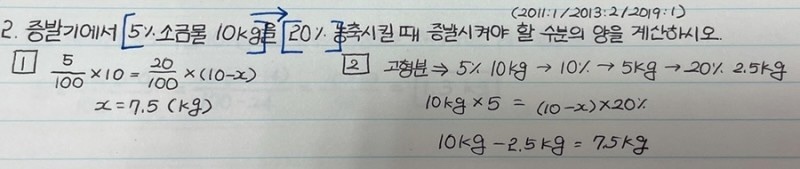 (2011:1/2013:2/2019:1)
2. 증발기에서 [5% 소금물 10kg]을 [20%] 농축시킬 때 증발시켜야 할 수분의 양을 계산하시오.
1 5/100 × 10 = 20/100 × (10-x)
x = 7.5 (kg)
2 고형분 ⇒ 5% 10kg → 10% → 5kg → 20% 2.5kg
10kg × 5 = (10-x) × 20%
10kg - 2.5kg = 7.5kg